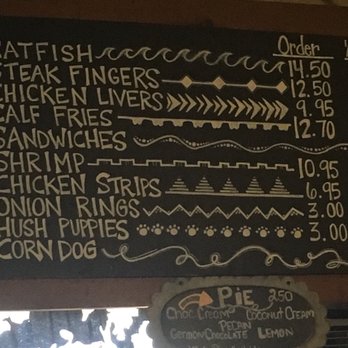 Order
ATFISH 14.50
STEAK FINGERS 12.50
CHICKEN LIVERS 9.95
CALF FRIES 12.70
SANDWICHES
SHRIMP 10.95
CHICKEN STRIPS 6.95
ONION RINGS 3.00
HUSH PUPPIES 3.00
CORN DOG
PIE 2.50
Choc. Cream Coconut Cream
PECAN
German Chocolate LEMON